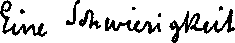 Eine Schwierigkeit